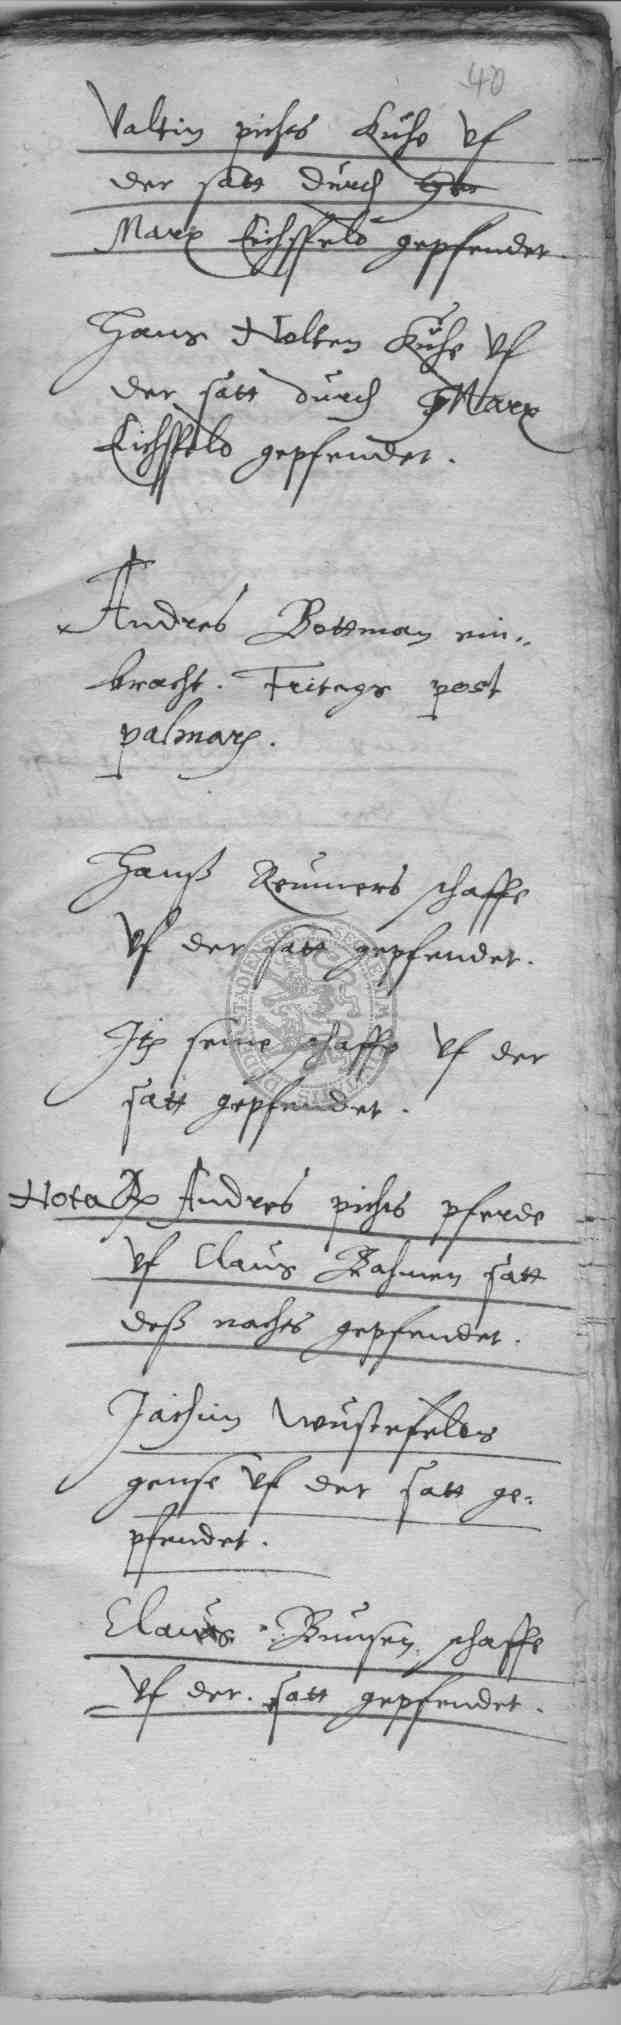 40
Valtin pichts Kuhe vf
der satt durch
Marx Eichsfeld gepfendet
Hans Nolten Kuhe vf
der satt durch Marx
Eichsfeld gepfendet.
Andres Bottman ein„
bracht. Fritags post
palmarum.
Hanß Reumers schaffe
vf der satt gepfendet.
Itz seine schaffe vf der
satt gepfendet.
Nota Andres pichts pferde
vf Claus Bahmen satt
deß nachts gepfendet.
Jachim Wustefelds
gense vf der satt ge:
pfendet.
Claus Bunsen schaffe
vf der satt gepfendet.